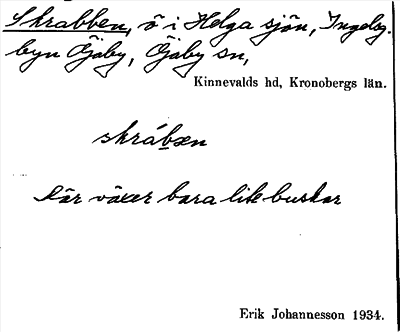 Skrabben, ö i Helga sjön, Ingelsg.
byn Öjaby, Öjaby sn,
Kinnevalds hd, Kronobergs län.
skrábæn
Där växer bara lite buskar
Erik Johannesson 1934.